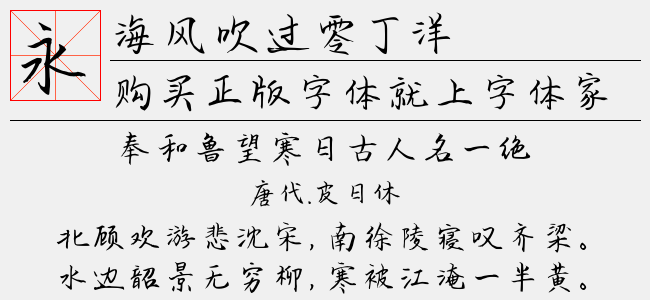 永
海风吹过零丁洋
购买正版字体就上字体家
奉和鲁望寒日古人名一绝
唐代.皮日休
北顾欢游悲沈宋,南徐陵寝叹齐梁。
水边韶景无穷柳,寒被江淹一半黄。